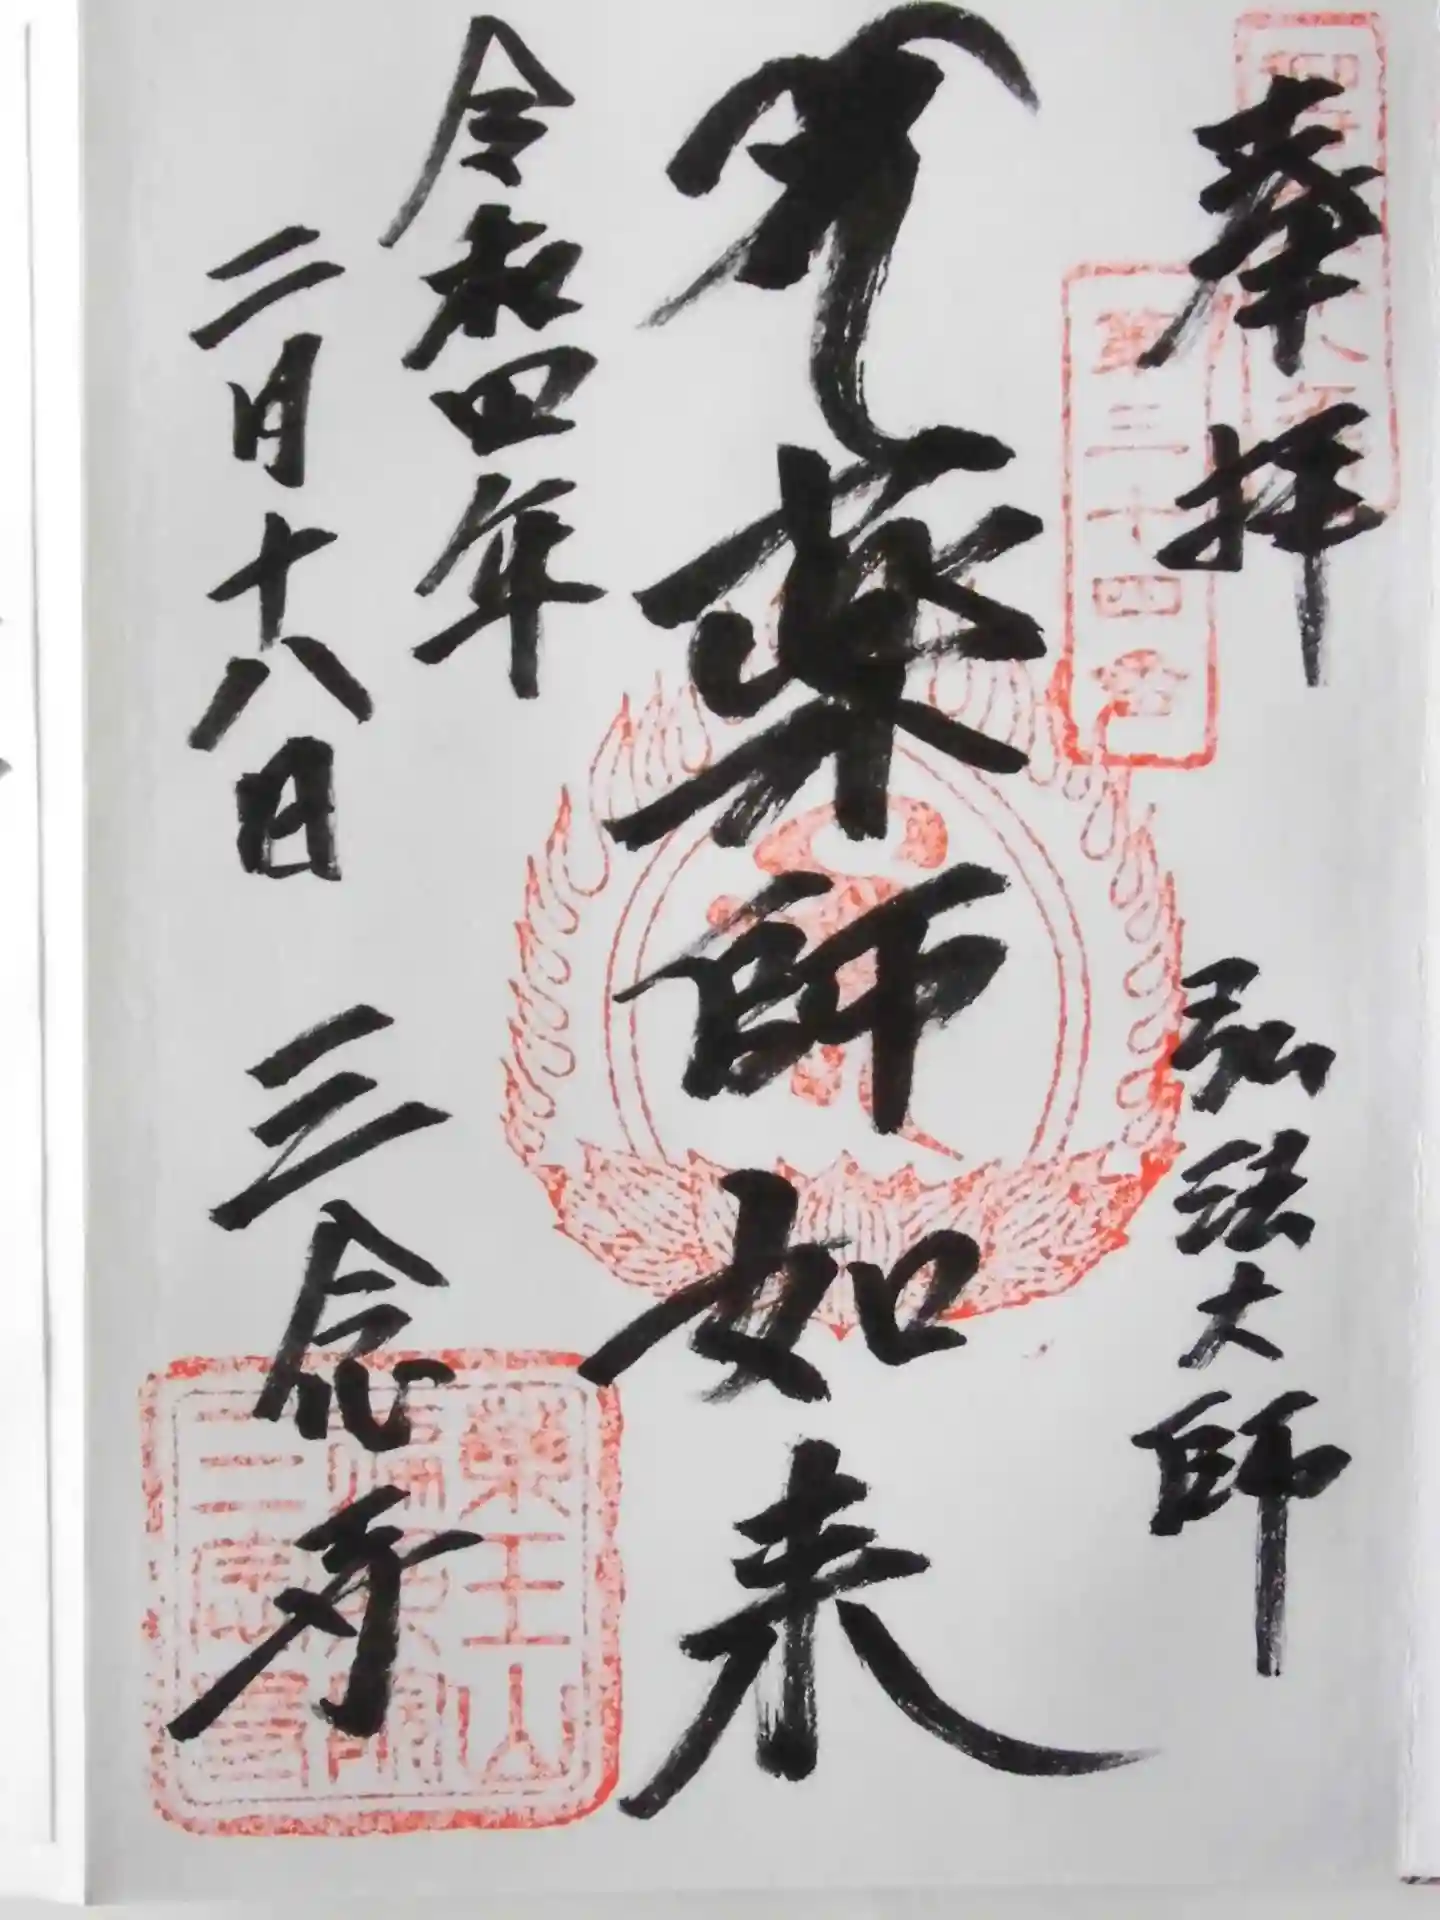 奉拝
弘法大師
第三十四番
薬師如来
令和四年
二月十八日
三念寺
薬王山
三念寺